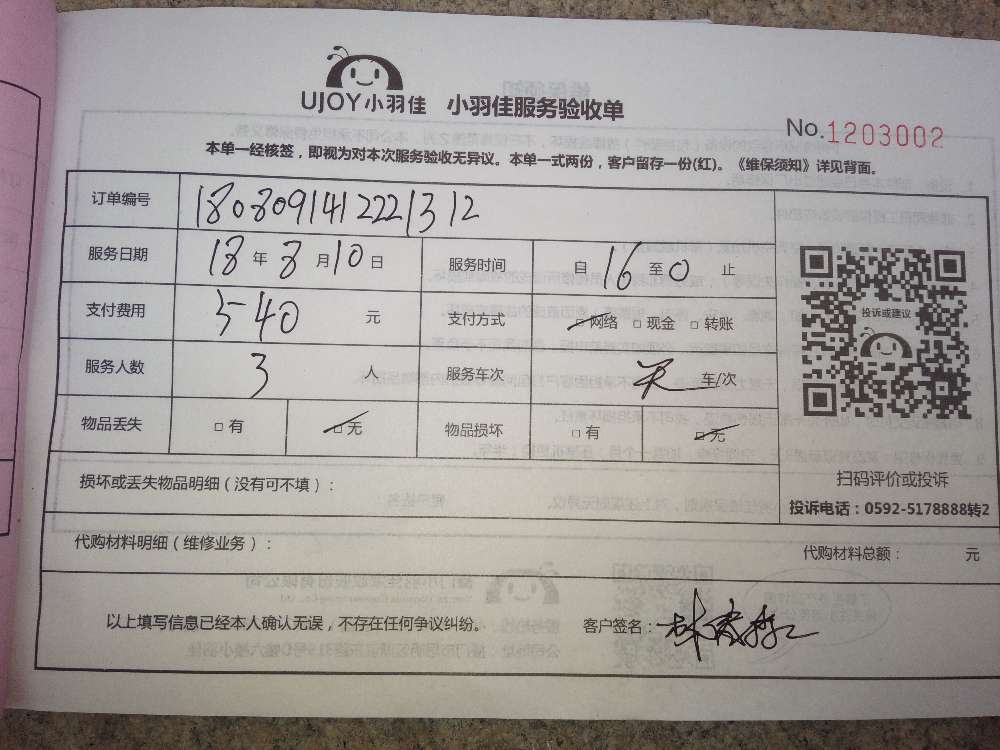 UJOY小羽佳 小羽佳服务验收单
No.1203002
本单一经核签，即视为对本次服务验收无异议。本单一式两份，客户留存一份(红)。《维保须知》详见背面。
订单编号 1808091412221312
服务日期 18年8月10日 服务时间 自16至0止
支付费用 540元 支付方式 □网络 □现金 □转账
服务人数 3人 服务车次 车/次
物品丢失 □有 □无 物品损坏 □有 □无
投诉或建议
扫码评价或投诉
投诉电话：0592-5178888转2
损坏或丢失物品明细（没有可不填）：
代购材料明细（维修业务）： 代购材料总额： 元
以上填写信息已经本人确认无误，不存在任何争议纠纷。 客户签名：